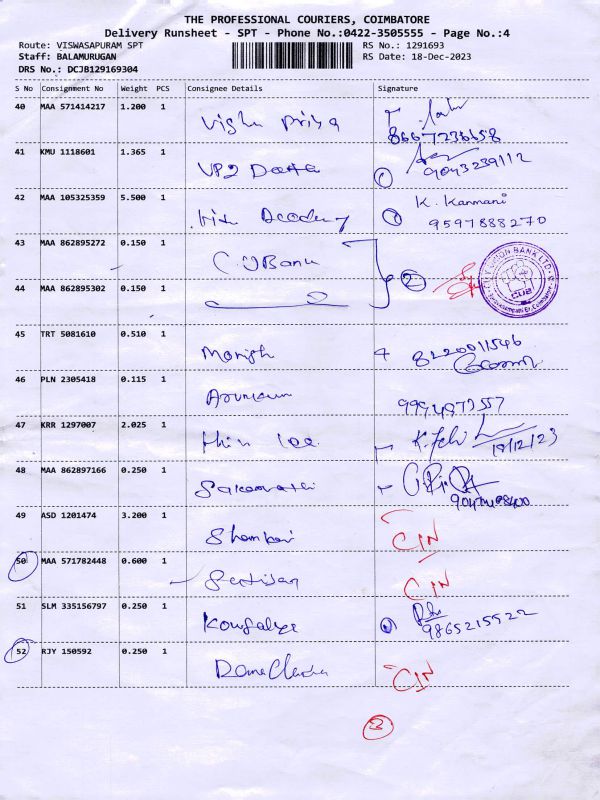 THE PROFESSIONAL COURIERS, COIMBATORE
Delivery Runsheet - SPT - Phone No.:0422-3505555 - Page No.:4
Route: VISWASAPURAM SPT RS No.: 1291693
Staff: BALAMURUGAN RS Date: 18-Dec-2023
DRS No.: DCJB129169304
S No Consignment No Weight PCS Consignee Details Signature
40 MAA 571414217 1.200 1 Vishu Priya
8667236658
41 KMU 1118601 1.365 1 1
9043239112
42 MAA 105325359 5.500 1 K. Kanmani
9597888270
43 MAA 862895272 0.150 1 C U Bank
2
44 MAA 862895302 0.150 1
CUB
45 TRT 5081610 0.510 1 8220011546
46 PLN 2305418 0.115 1
47 KRR 1297007 2.025 1 18/12/23
48 MAA 862897166 0.250 1
49 ASD 1201474 3.200 1 CIN
50 MAA 571782448 0.600 1 CIN
51 SLM 335156797 0.250 1
9865215522
52 RJY 150592 0.250 1 CIN
3